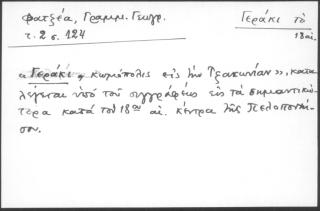 Φατζέα, Γραμμ. Γεωγρ.
τ. 2 σ. 124
Γεράκι τὸ
18 αἰ.
« Γεράκι, κωμόπολις εἰς τὴν Τζακωνίαν », κατα
λέγεται ὑπὸ τοῦ συγγραφέως εἰς τὰ σημαντικώ-
τερα κατὰ τὸν 18ον αἰ. κέντρα τῆς Πελοποννή-
σου.